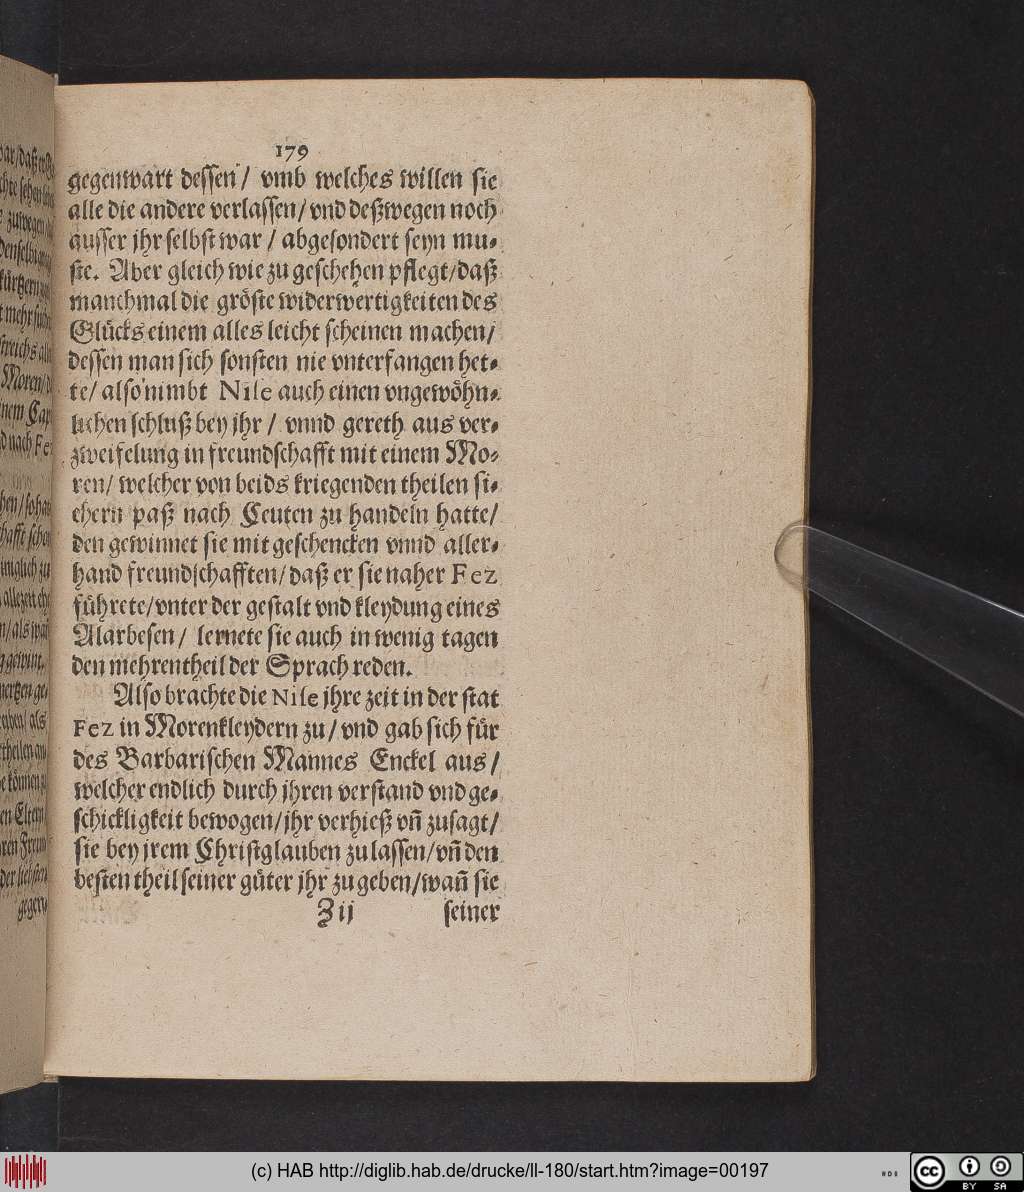 179
gegenwart dessen/ vmb welches willen sie
alle die andere verlassen/ vnd deßwegen noch
ausser jhr selbst war / abgesondert seyn mu⸗
ste. Aber gleich wie zu geschehen pflegt/ daß
manchmal die gröste widerwertigkeiten des
Glücks einem alles leicht scheinen machen/
dessen man sich sonsten nie vnterfangen het⸗
te/ also nimbt Nile auch einen vngewöhn⸗
lichen schluß bey jhr / vnnd gereth aus ver⸗
zweifelung in freundschafft mit einem Mo⸗
ren/ welcher von beids kriegenden theilen si⸗
chern paß nach Ceuten zu handeln hatte/
den gewinnet sie mit geschencken vnnd aller⸗
hand freundschafften/ daß er sie naher Fez
führete/ vnter der gestalt vnd kleydung eines
Alarbesen/ lernete sie auch in wenig tagen
den mehrentheil der Sprach reden.
Also brachte die Nile jhre zeit in der stat
Fez in Morenkleydern zu/ vnd gab sich für
des Barbarischen Mannes Enckel aus/
welcher endlich durch jhren verstand vnd ge⸗
schickligkeit bewogen/ jhr verhieß vn̄ zusagt/
sie bey jrem Christglauben zu lassen/ vn̄ den
besten theil seiner güter jhr zu geben/ wan̄ sie
Z ij seiner
(c) HAB http://diglib.hab.de/drucke/ll-180/start.htm?image=00197
cc BY SA